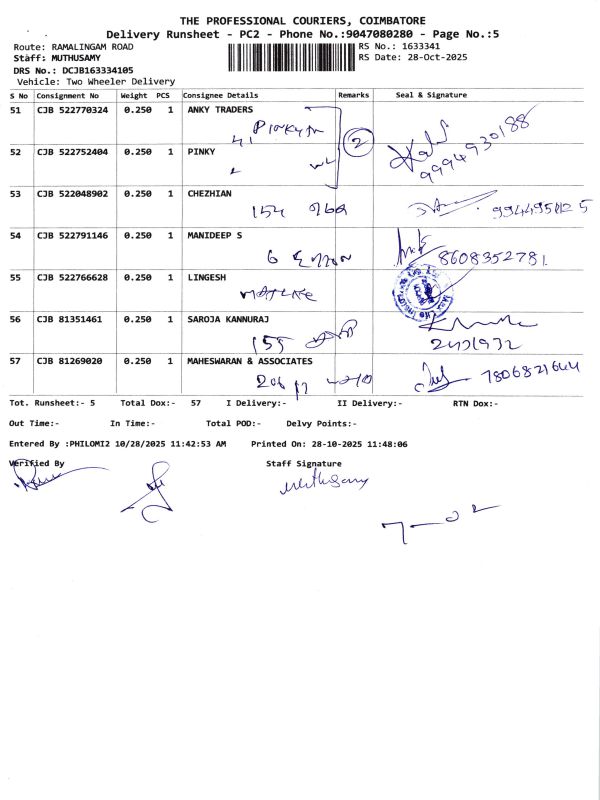 THE PROFESSIONAL COURIERS, COIMBATORE
Delivery Runsheet - PC2 - Phone No.:9047080280 - Page No.:5
Route: RAMALINGAM ROAD
RS No.: 1633341
Staff: MUTHUSAMY
RS Date: 28-Oct-2025
DRS No.: DCJB163334105
Vehicle: Two Wheeler Delivery
S No Consignment No Weight PCS Consignee Details Remarks Seal & Signature
51 CJB 522770324 0.250 1 ANKY TRADERS
2
9994930188
52 CJB 522752404 0.250 1 PINKY
53 CJB 522048902 0.250 1 CHEZHIAN
154
54 CJB 522791146 0.250 1 MANIDEEP S
6
8608352781
55 CJB 522766628 0.250 1 LINGESH
56 CJB 81351461 0.250 1 SAROJA KANNURAJ
155
2431932
57 CJB 81269020 0.250 1 MAHESWARAN & ASSOCIATES
7806821644
Tot. Runsheet:- 5 Total Dox:- 57 I Delivery:- II Delivery:- RTN Dox:-
Out Time:- In Time:- Total POD:- Delvy Points:-
Entered By :PHILOMI2 10/28/2025 11:42:53 AM Printed On: 28-10-2025 11:48:06
Verified By Staff Signature
Muthusamy